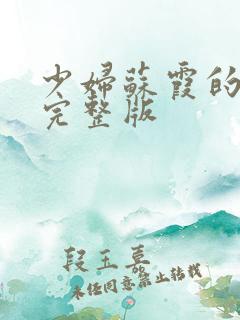 少婦蘇霞的
完整版
段玉慕
未经同意禁止转载